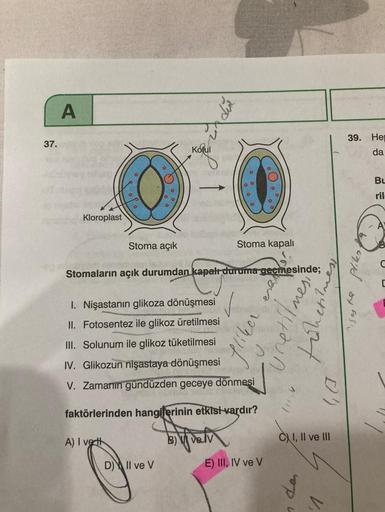 A
37.
39. Her
da
Koful
Bu
ril
Kloroplast
Stoma açık
Stoma kapalı
Stomaların açık durumdan kapalı duruma geçmesinde;
I. Nişastanın glikoza dönüşmesi
II. Fotosentez ile glikoz üretilmesi
III. Solunum ile glikoz tüketilmesi
IV. Glikozun nişastaya dönüşmesi
V. Zamanın gündüzden geceye dönmesi
faktörlerinden hangilerinin etkisi vardır?
A) I ve II
B) II ve IV
C) I, II ve III
D) I, II ve V
E) III, IV ve V